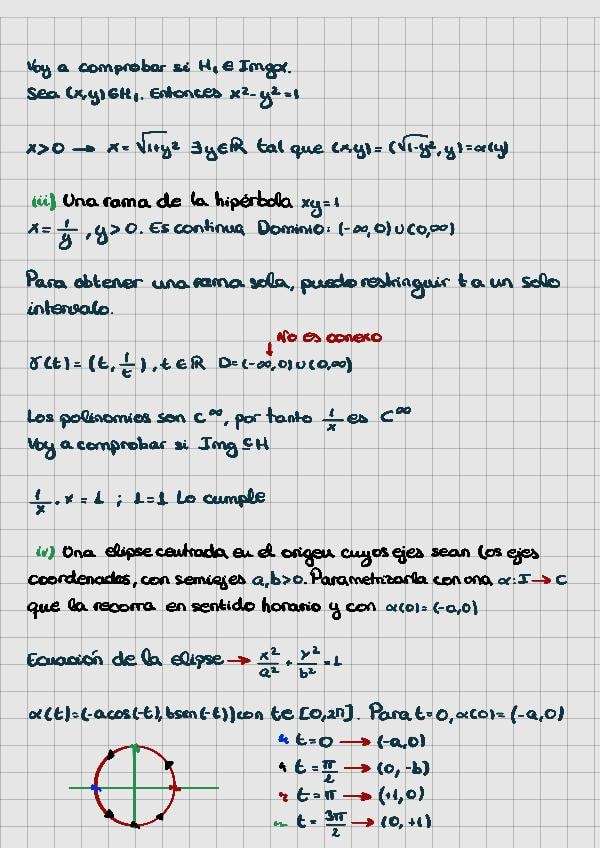 Voy a comprobar si H₁ ∈ Imgα.
Sea (x,y) ∈ H₁. Entonces x²-y²=1
x>0 → x = √1+y² ∃y∈ℝ tal que (x,y) = (√1-y², y) = α(y)
(iii) Una rama de la hipérbola xy=1
x = 1/y, y>0. Es continua Dominio: (-∞,0)∪(0,∞)
Para obtener una rama sola, puedo restringuir t a un solo
intervalo.
No es conexo
γ(t) = (t, 1/t), t∈ℝ D=(-∞,0)∪(0,∞)
Los polinomios son C^∞, por tanto 1/x es C^∞
Voy a comprobar si Img ⊆ H
1/x · x = 1 ; 1=1 Lo cumple
(iv) Una elipse centrada en el origen cuyos ejes sean los ejes
coordenados, con semiejes a,b>0. Parametrizarla con una α: I → C
que la recorra en sentido horario y con α(0) = (-a,0)
Ecuación de la elipse → x²/a² + y²/b² = 1
α(t) = (-acos(-t), bsen(-t)) con t∈[0,2π]. Para t=0, α(0) = (-a,0)
t=0 → (-a,0)
t = π/2 → (0, -b)
t = π → (+1,0)
t = 3π/2 → (0, +1)